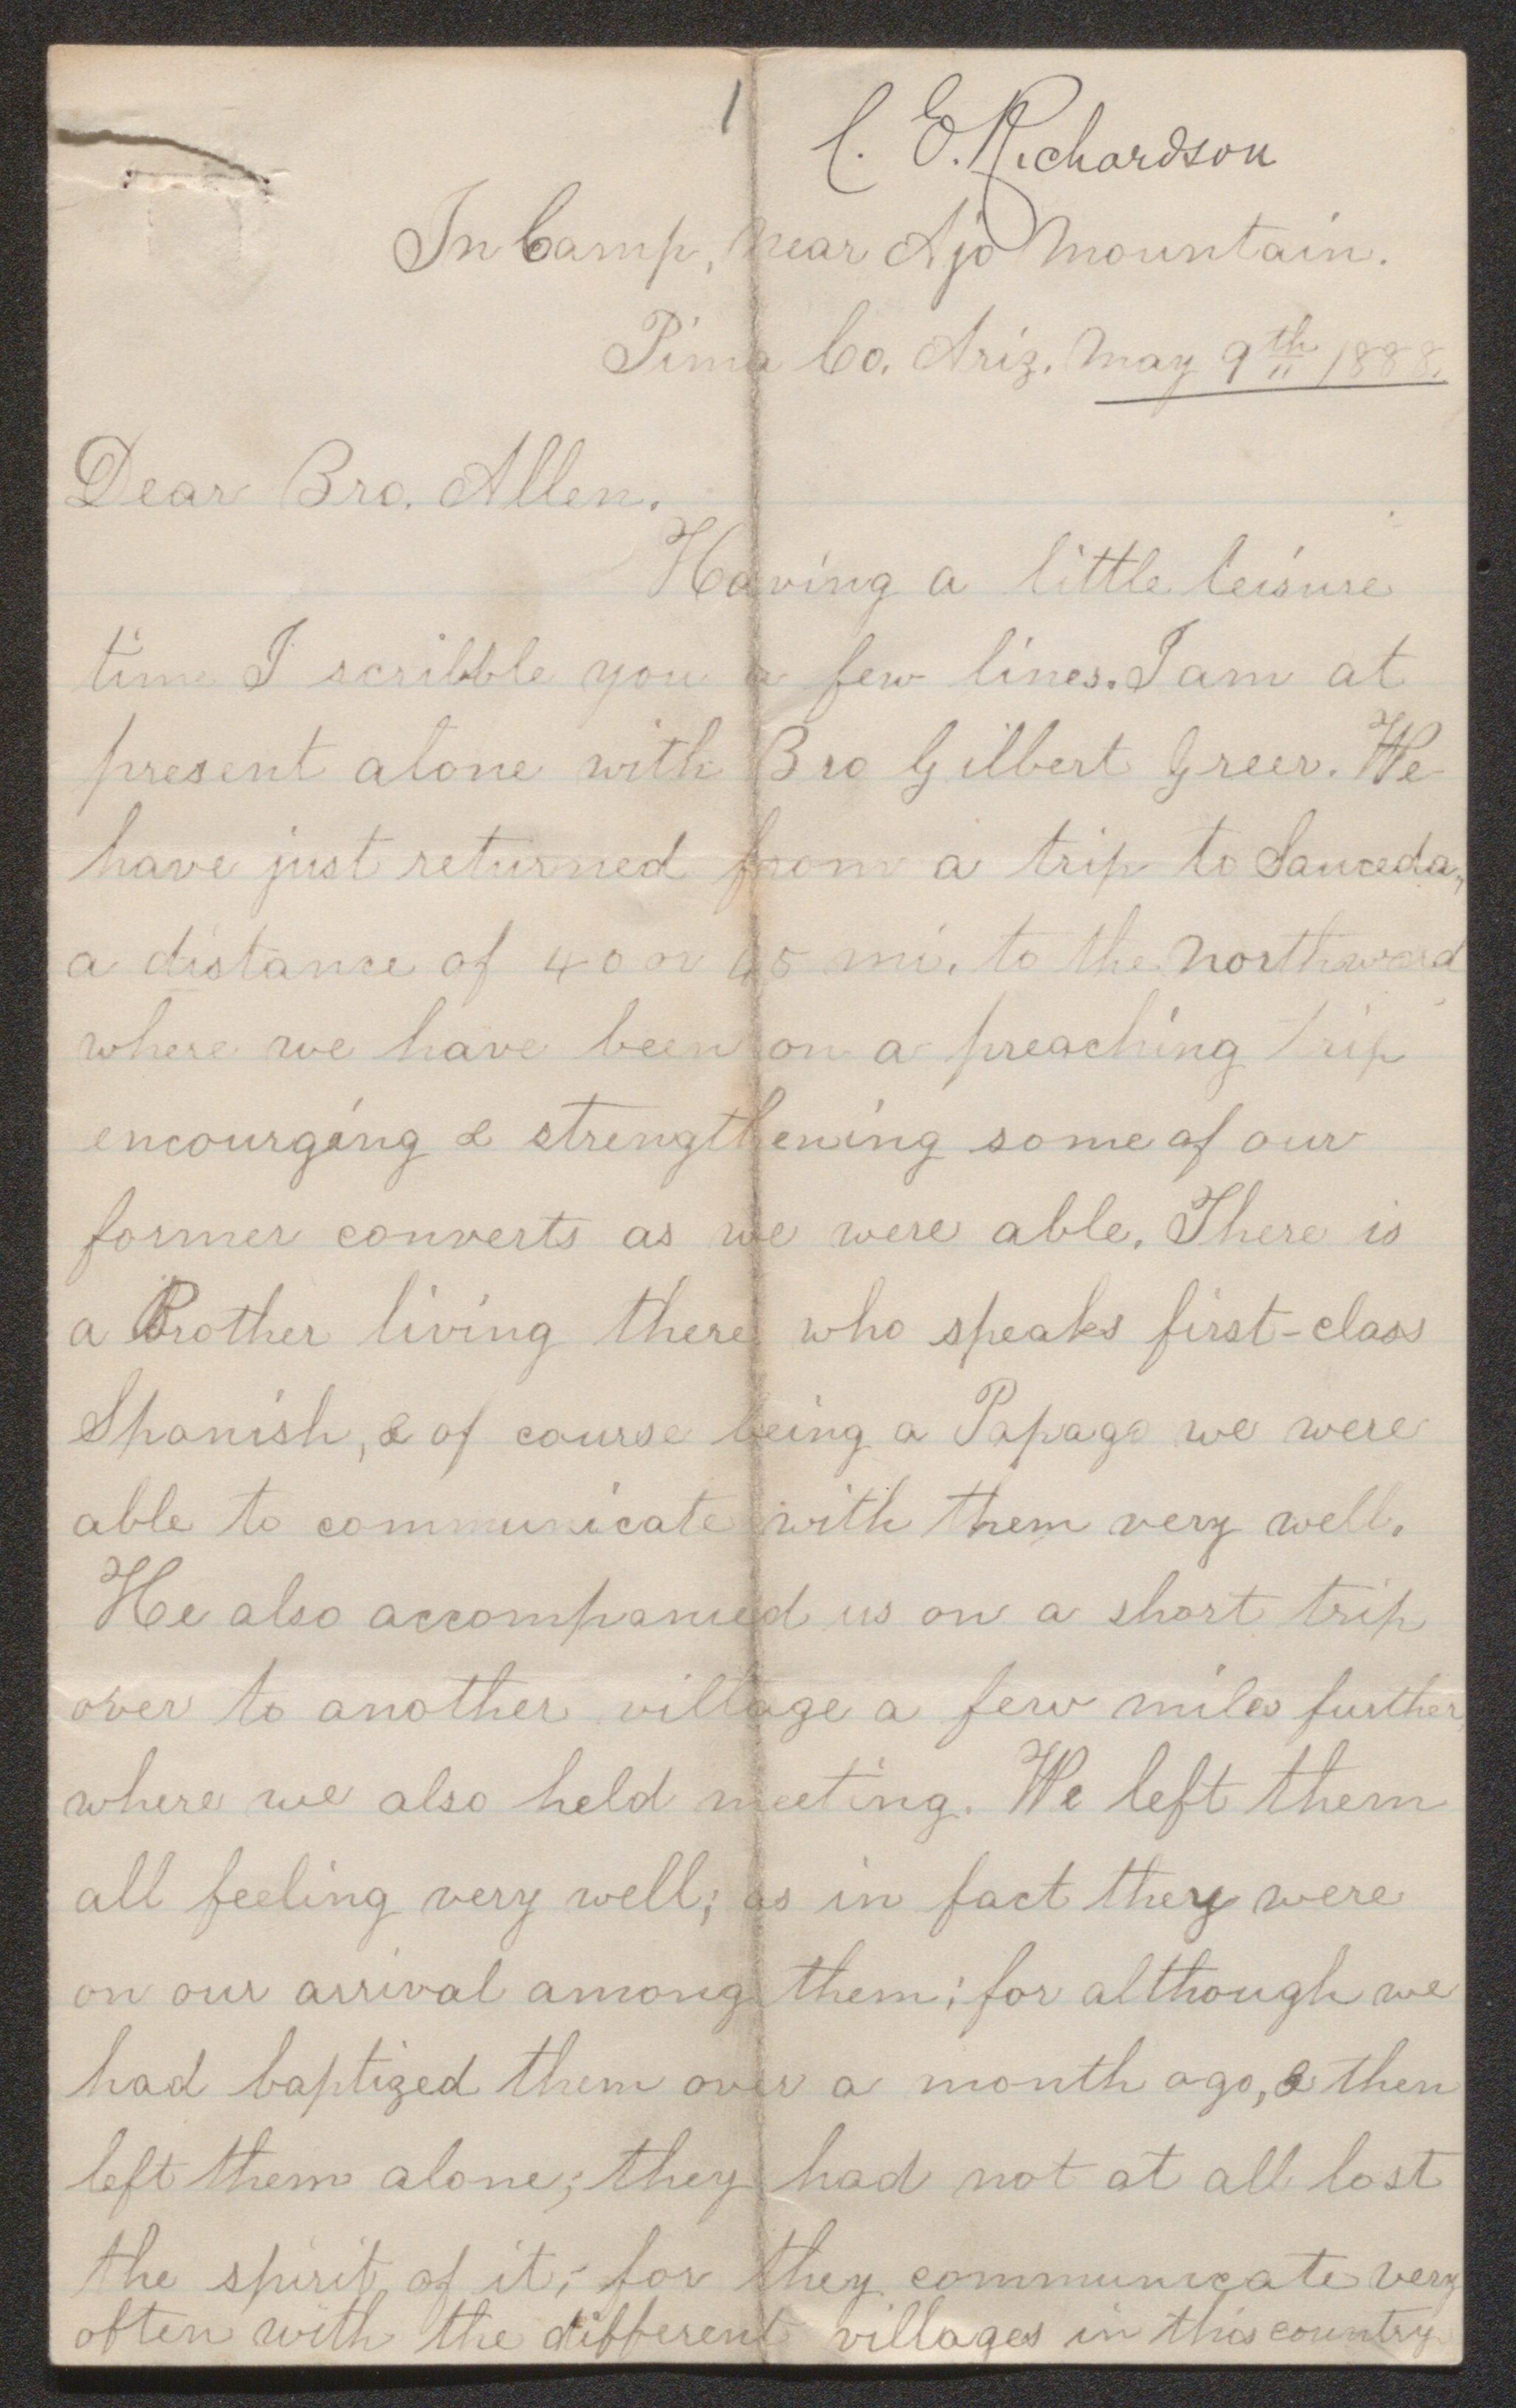 1
C. E. Richardson
In Camp, Near Ajo Mountain.
Pima Co. Ariz. May 9th 1888.
Dear Bro. Allen.
Having a little leisure
time I scribble you a few lines. I am at
present alone with Bro Gilbert Greer. We
have just returned from a trip to Sauceda,
a distance of 40 or 45 mi. to the Northward
where we have been on a preaching trip
encourging & strengthening some of our
former converts as we were able. There is
a Brother living there who speaks first-class
Spanish, & of course being a Papago we were
able to communicate with them very well.
He also accompanied us on a short trip
over to another village a few miles further,
where we also held meeting. We left them
all feeling very well; as in fact they were
on our arrival among them; for although we
had baptized them over a month ago, & then
left them alone; they had not at all lost
the spirit of it; for they communicate very
often with the different villages in this country